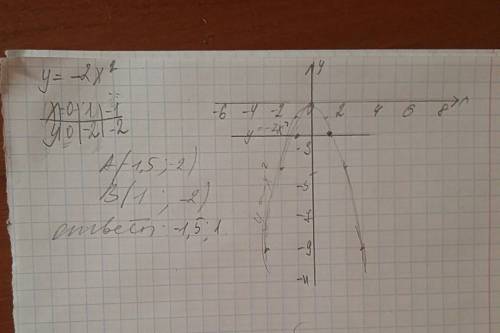 y = -2x²
x | 0 | 1 | -1
y | 0 | -2 | -2
A(-1,5 ; -2)
B(1 ; -2)
ответ: -1,5 ; 1
y
-6 -4 -2 0 2 4 6 8
y=-2x²
-3
-5
-9